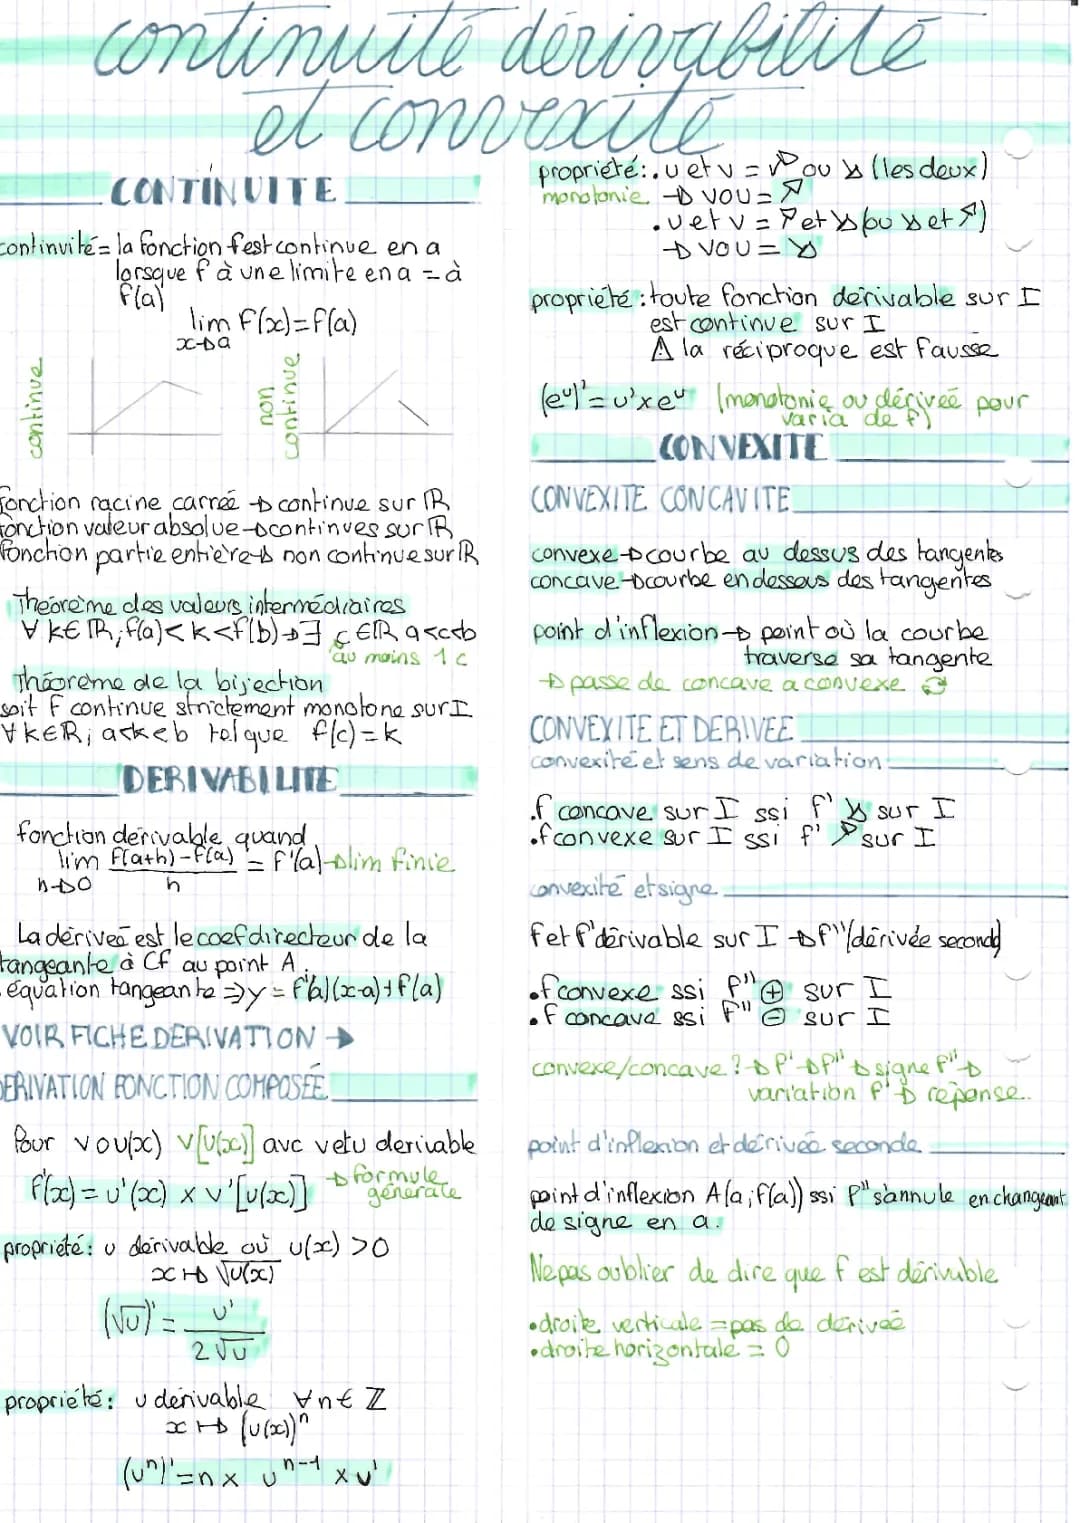 continuité dérivabilité
et convexité
CONTINUITE
continuité = la fonction f est continue en a
lorsque f à une limite en a = à
f(a)
lim f(x)=f(a)
x→a
continue
non
continue
fonction racine carreé → continue sur ℝ
fonction valeur absolue → continues sur ℝ
fonction partie entière → non continue sur ℝ
Théorème des valeurs intermédiaires
∀ k∈ℝ, f(a)<k<f(b) → ∃ c∈ℝ a<c<b
au moins 1 c
Théorème de la bijection
soit f continue strictement monotone sur I
∀k∈ℝ, a<k<b tel que f(c)=k
DERIVABILITE
fonction dérivable quand
lim f(a+h)-f(a) / h = f'(a) → lim finie
h→0
La dériveé est le coef directeur de la
tangeante à Cf au point A.
équation tangeante ⇒ y = f'(a)(x-a)+f(a)
VOIR FICHE DERIVATION →
DERIVATION FONCTION COMPOSÉE
Pour vou(x) v[u(x)] avc vetu derivable
f'(x) = u'(x) × v'[u(x)] → formule
génerale
propriété: u dérivable où u(x) >0
x ↦ √u(x)
(√u)' = u' / 2√u
propriété: u dérivable ∀n∈ℤ
x ↦ (u(x))ⁿ
(uⁿ)' = n × uⁿ⁻¹ × u'
propriété: . u et v = ↗ ou ↘ (les deux)
monotonie → vou = ↗
. u et v = ↗ et ↘ (ou ↘ et ↗)
→ vou = ↘
propriété : toute fonction dérivable sur I
est continue sur I
⚠ la réciproque est fausse
(eᵘ)' = u'xeᵘ (monotonie ou dériveé pour
varia de f)
CONVEXITE
CONVEXITE CONCAVITE
convexe → courbe au dessus des tangentes
concave → courbe en dessous des tangentes
point d'inflexion → point où la courbe
traverse sa tangente
→ passe de concave a convexe
CONVEXITE ET DERIVEE
convexité et sens de variation
. f concave sur I ssi f' ↘ sur I
. f convexe sur I ssi f' ↗ sur I
convexité et signe
f et f' dérivable sur I → f'' (dérivée seconde)
• f convexe ssi f'' ⊕ sur I
• f concave ssi f'' ⊖ sur I
convexe/concave ? → f' → f'' → signe f'' →
variation f' → réponse..
point d'inflexion et dérivée seconde
point d'inflexion A(a; f(a)) ssi f'' s'annule en changeant
de signe en a.
Ne pas oublier de dire que f est dérivable
• droite verticale = pas de dériveé
• droite horizontale = 0